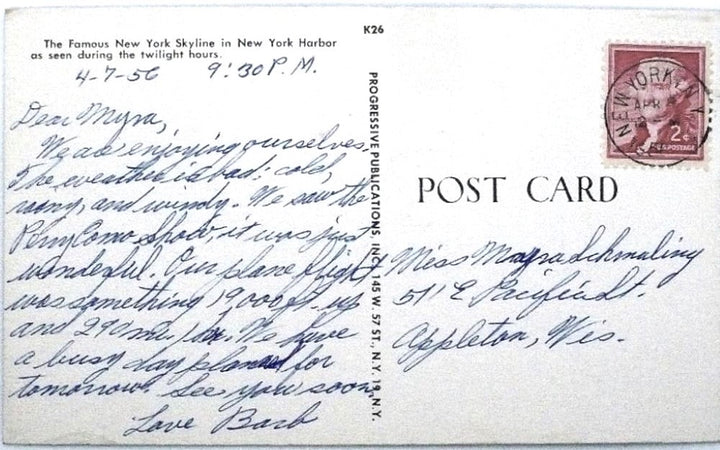 K26
The Famous New York Skyline in New York Harbor
as seen during the twilight hours.
4-7-56 9:30 P.M.
Dear Myra,
We are enjoying ourselves.
The weather is bad: cold,
rainy, and windy. We saw the
Perry Como Show, it was just
wonderful. Our plane flight
was something 19,000 ft. up
and 290 mi. hr. We have
a busy day planned for
tomorrow. See you soon,
Love Barb
PROGRESSIVE PUBLICATIONS, INC. 145 W. 57 ST., N.Y. 19, N.Y.
NEW YORK N.Y.
APR
2¢
U.S. POSTAGE
POST CARD
Miss Myra Schmaling
511 E Pacific St.
Appleton, Wis.